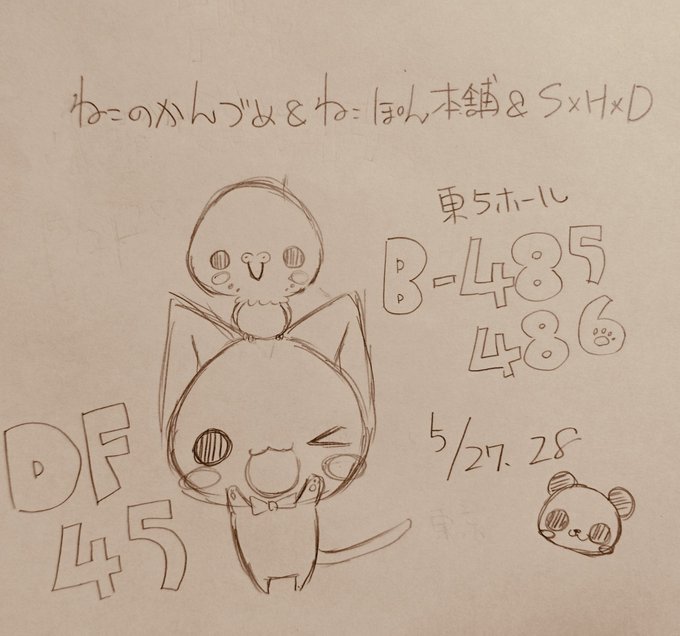 ねこのかんづめ&ねこぽん本舗&S×H×D
東5ホール
B-485
486
DF
45
5/27.28